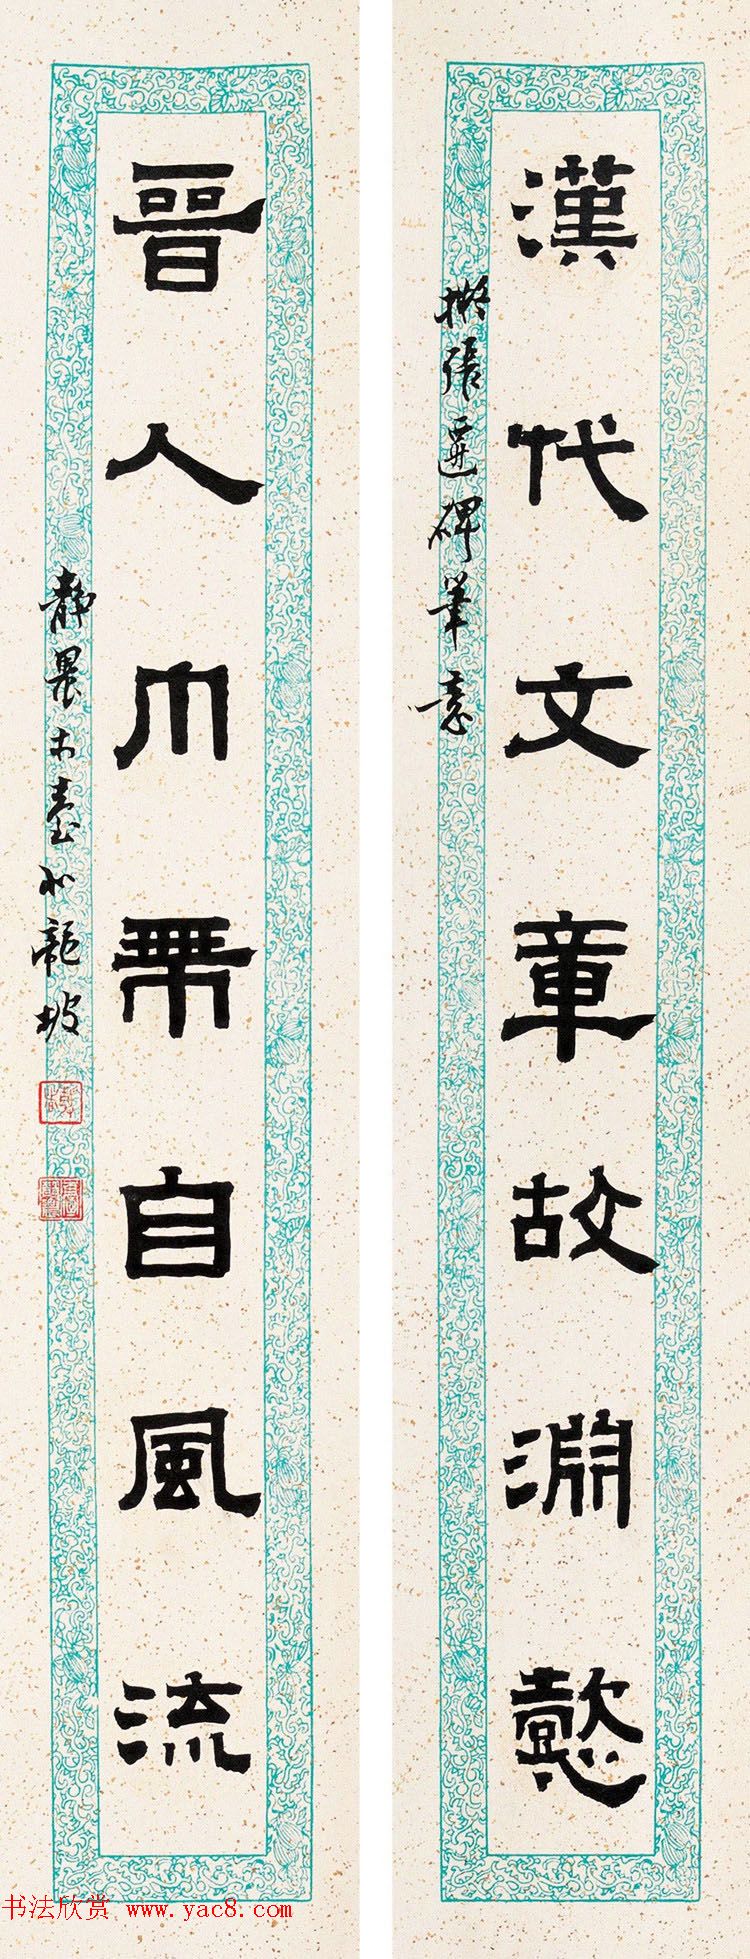 漢代文章故淵懿
擬張遷碑筆意
晉人巾帶自風流
靜農於臺北龍坡
书法欣赏 www.yac8.com